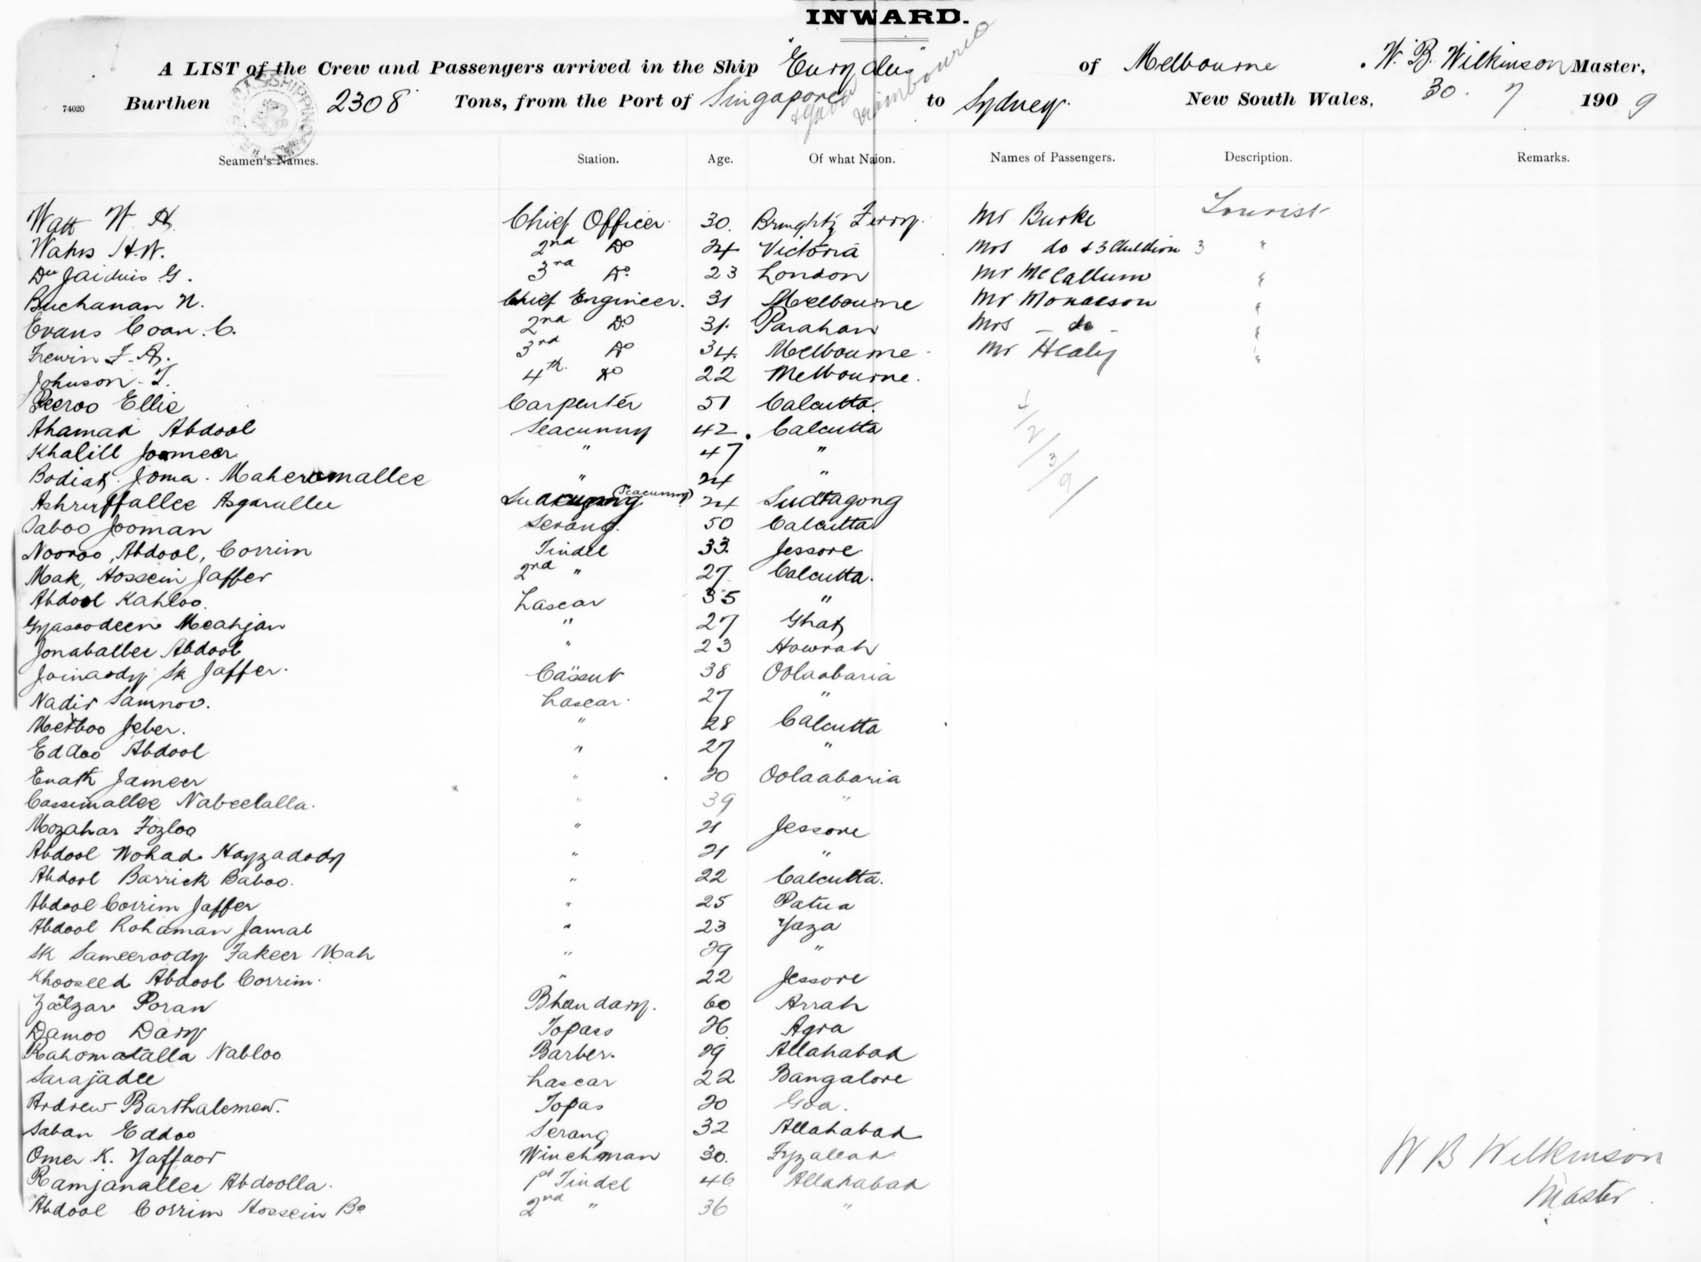 INWARD.
A LIST of the Crew and Passengers arrived in the Ship "Eurydus" of Melbourne, W. B. Wilkinson Master,
74020 Burthen 2308 Tons, from the Port of Singapore to Sydney New South Wales, 30. 7 1909
Seamen's Names. Station. Age. Of what Nation. Names of Passengers. Description. Remarks.
Watt W. A. Chief Officer 30. Ferry. Mr Burke Tourist
H.W. 2nd Do 24 Victoria Mrs do & 3 Children 3 "
G. 3rd Do 23 London Mr McCallum "
Buchanan N. Chief Engineer. 31 Melbourne Mr "
Evans Coan. C. 2nd Do 31. Parahan Mrs - do - "
Frewin F. A. 3rd Do 34 Melbourne Mr Healy "
Johnson. T. 4th Do 22 Melbourne.
Peeroo Ellie Carpenter 51 Calcutta.
Ahamad Abdool Seacunny 42. Calcutta
Khalill Joomeer " 47 "
Joma. Maheromallee " 24 "
Ashruffallee Asgarallee (Seacunny) 24 Sudtagong
Saboo Jooman Serang. 50 Calcutta
Nooroo, Abdool, Corrim Tindel 33. Jessore
Mak, Hossein Jaffer 2nd " 27. Calcutta.
Abdool Kahloo. Lascar 35 "
Gyasoodeen Meahjan " 27 Ghat
Jonaballee Abdool " 23 Howrah
Joinaody Sk Jaffer. Cassut 38 Oolaabaria
Nadir Samnoo. Lascar. 27 "
Metboo Jeber. " 28 Calcutta
Eddoo Abdool " 27 "
Enath Jameer " 20 Oolaabaria
Cassimallee Nabeelalla. " 39 "
Mozahar Fozloo " 21 Jessore
Abdool Wohad Hayzadody " 21 "
Abdool Barrick Baboo. " 22 Calcutta.
Abdool Corrim Jaffer " 25 Patna
Abdool Rohaman Jamal " 23 Yaza
Sk Sameeroody Fakeer Mah " 29 "
Khooseed Abdool Corrim. " 22 Jessore
Poran Bhandary. 60 Arrah
Damoo Dary Topass 26 Agra
Rahomatalla Nabloo Barber. 29 Allahabad
Sarajadee Lascar 22 Bangalore
Andrew Barthalemew. Topas 20 Goa.
Saban Eddoo Serang 32 Allahabad
Omer K. Yaffaor Winchman 30. Fyzallad W B Wilkinson
Ramjanallee Abdoolla. 1st Tindel 46 Allahabad Master
Abdool Corrim Hossein Bo 2nd " 36 "